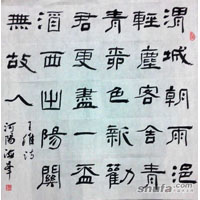 渭城朝雨浥
輕塵客舍青
青柳色新勸
君更盡一盃
酒西出陽關
無故人
王維詩
河陽
shufa.com